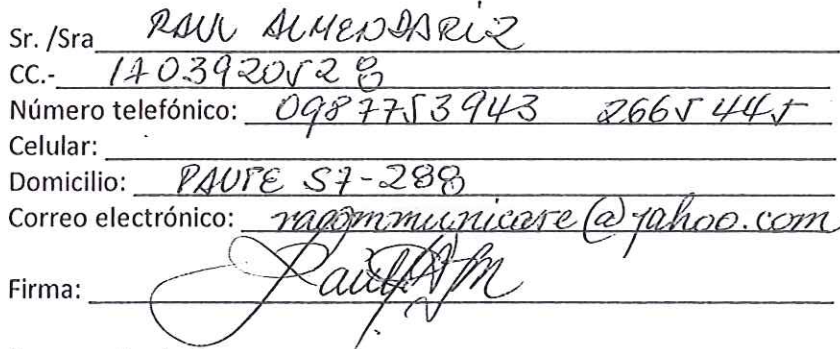 Sr. /Sra RAUL ALMENDARIZ
CC.- 1703920528
Número telefónico: 0987753943 2665445
Celular:
Domicilio: PAUTE S7-288
Correo electrónico: ragommunicare@yahoo.com
Firma: